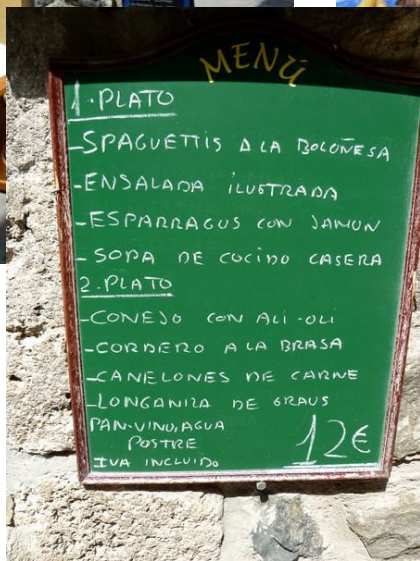 MENÚ
1.PLATO
-SPAGUETTIS A LA BOLOÑESA
-ENSALADA ILUSTRADA
-ESPARRAGUS CON JAMON
-SOPA DE COCIDO CASERA
2.PLATO
-CONEJO CON ALI-OLI
-CORDERO A LA BRASA
-CANELONES DE CARNE
-LONGANIZA DE GRAUS
PAN-VINO/AGUA
POSTRE
12€
IVA INCLUIDO